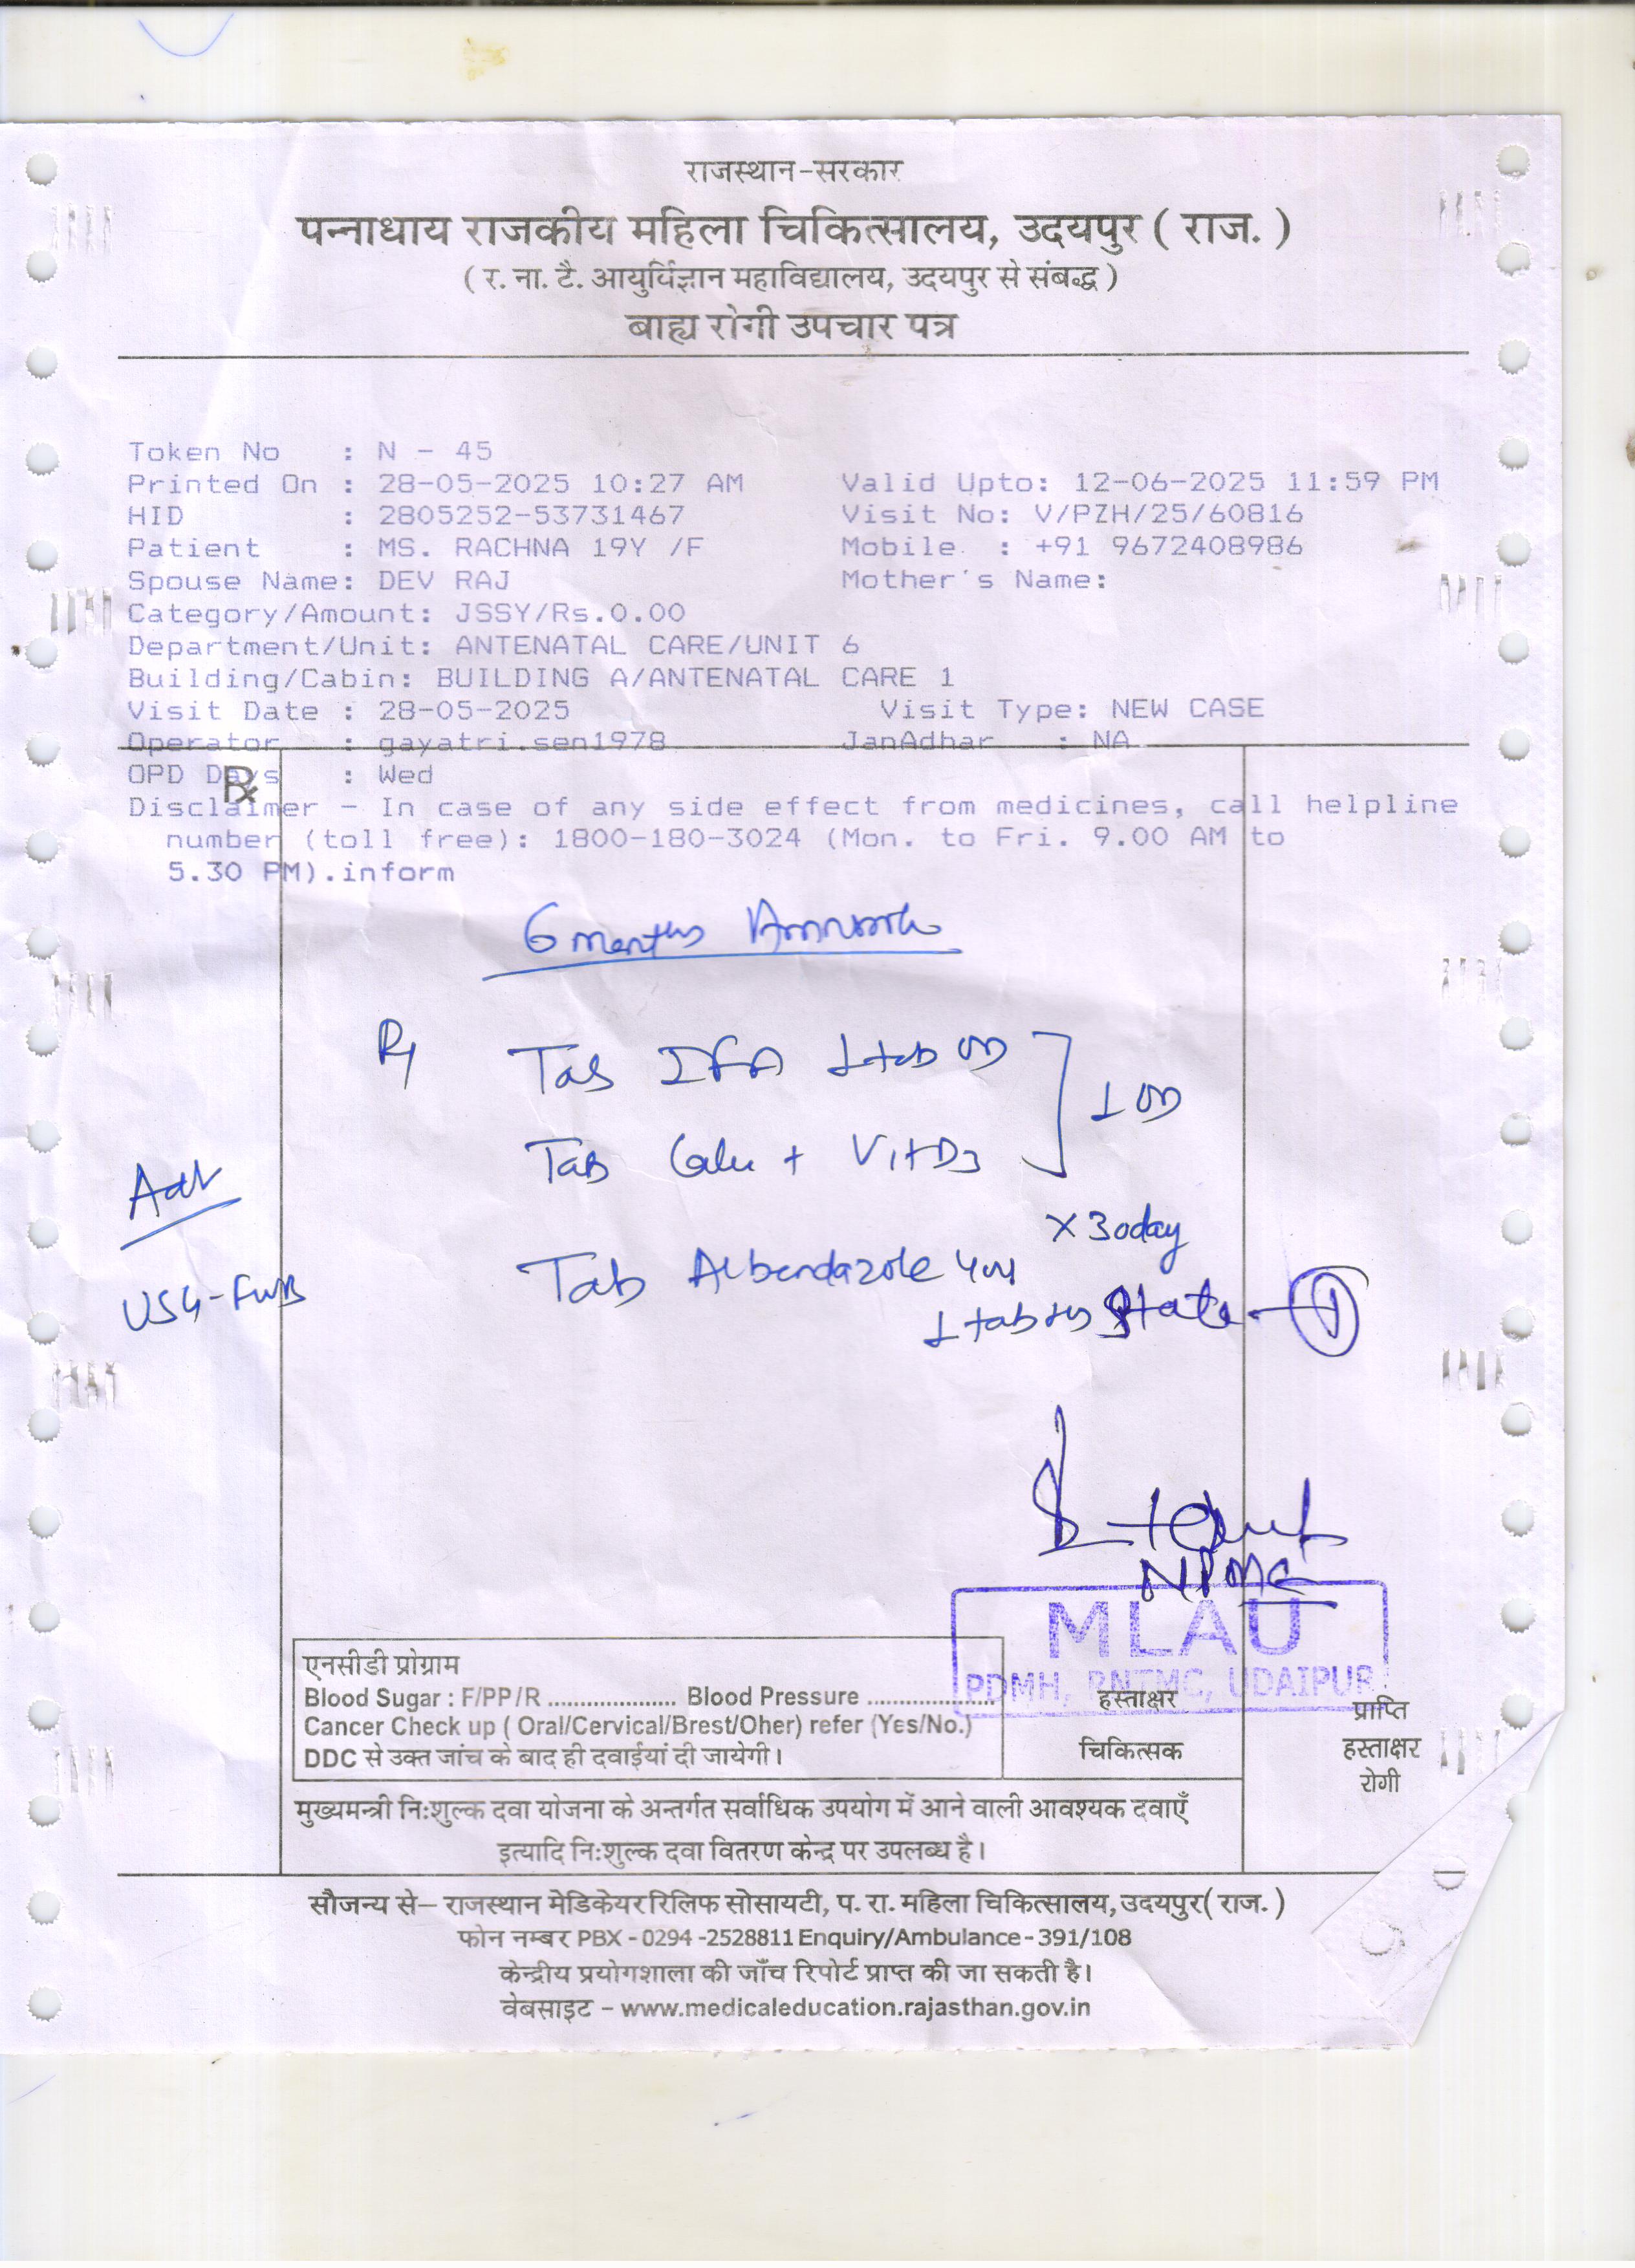 राजस्थान-सरकार
पन्नाधाय राजकीय महिला चिकित्सालय, उदयपुर ( राज. )
( र. ना. टै. आयुर्विज्ञान महाविद्यालय, उदयपुर से संबद्ध )
बाह्य रोगी उपचार पत्र
Token No : N - 45
Printed On : 28-05-2025 10:27 AM Valid Upto: 12-06-2025 11:59 PM
HID : 2805252-53731467 Visit No: V/PZH/25/60816
Patient : MS. RACHNA 19Y /F Mobile : +91 9672408986
Spouse Name: DEV RAJ Mother's Name:
Category/Amount: JSSY/Rs.0.00
Department/Unit: ANTENATAL CARE/UNIT 6
Building/Cabin: BUILDING A/ANTENATAL CARE 1
Visit Date : 28-05-2025 Visit Type: NEW CASE
Operator : gayatri.sen1978 JanAdhar : NA
OPD Days : Wed
Rx
Disclaimer - In case of any side effect from medicines, call helpline
number (toll free): 1800-180-3024 (Mon. to Fri. 9.00 AM to
5.30 PM).inform
6 months
Rx Tab IFA 1 tab OD
1 OD
Tab + Vit D3
Adv
x 30day
Tab Albendazole
USG-FWB
1 tab
1
MLAU
PDMH, RNTMC, UDAIPUR
एनसीडी प्रोग्राम
Blood Sugar : F/PP/R ..................... Blood Pressure .....................
Cancer Check up ( Oral/Cervical/Brest/Oher) refer (Yes/No.)
DDC से उक्त जांच के बाद ही दवाईयां दी जायेगी।
हस्ताक्षर
चिकित्सक
प्राप्ति
हस्ताक्षर
रोगी
मुख्यमन्त्री निःशुल्क दवा योजना के अन्तर्गत सर्वाधिक उपयोग में आने वाली आवश्यक दवाएँ
इत्यादि निःशुल्क दवा वितरण केन्द्र पर उपलब्ध है।
सौजन्य से– राजस्थान मेडिकेयर रिलिफ सोसायटी, प. रा. महिला चिकित्सालय, उदयपुर( राज. )
फोन नम्बर PBX - 0294 -2528811 Enquiry/Ambulance - 391/108
केन्द्रीय प्रयोगशाला की जाँच रिपोर्ट प्राप्त की जा सकती है।
वेबसाइट – www.medicaleducation.rajasthan.gov.in